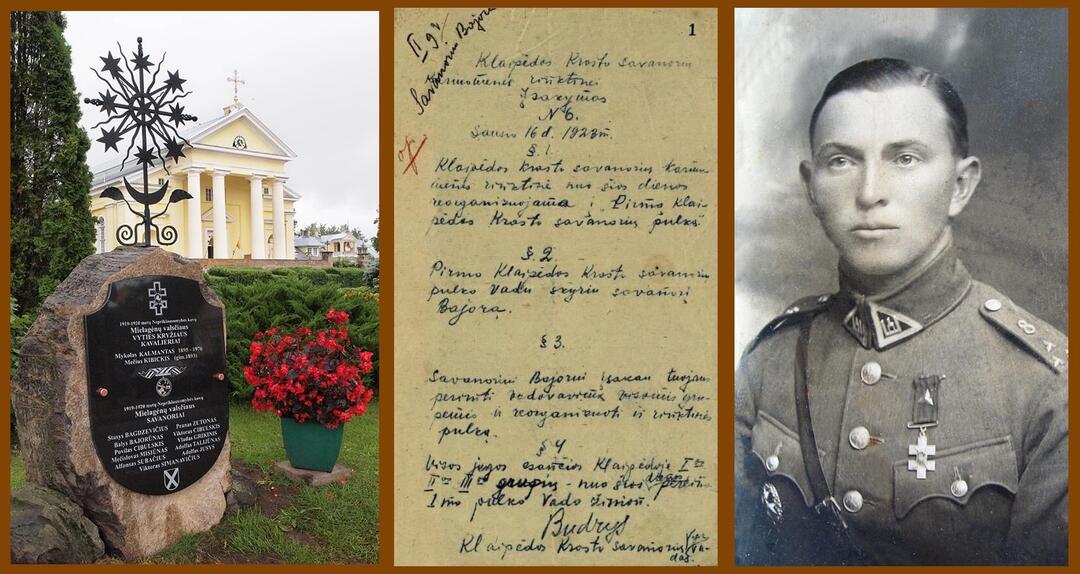 1919-1920 metų Nepriklausomybės kovų
Mielagėnų valsčiaus
VYTIES KRYŽIAUS
KAVALIERIAI
Mykolas KALMANTAS 1895 - 1976
Mečius KIBICKIS (gim.1893)
1919-1920 metų Nepriklausomybės kovų
Mielagėnų valsčiaus
SAVANORIAI
Stasys BAGDZEVIČIUS
Balys BAJORŪNAS
Povilas CIBULSKIS
Mečislovas MISIŪNAS
Alfonsas SUBAČIUS
Pranas ZUTONAS
Viktoras CIBULSKIS
Vladas GRIKINIS
Adolfas TALIJŪNAS
Adolfas JUSYS
Viktoras SIMANAVIČIUS
1
II 9
Savanoriui Bajorui
Klaipėdos Krašto savanorių
kariuomenės rinktinei
Įsakymas
N 6.
Sausio 16 d. 1923 m.
§ 1.
Klaipėdos krašto savanorių kariuo-
menės rinktinė nuo šios dienos
reorganizuojama į Pirmo Klai-
pėdos Krašto savanorių pulką
§. 2.
Pirmo Klaipėdos Krašto savanorių
pulko vadu skyriu savanorį
Bajorą.
§ 3.
Savanoriui Bajorui įsakau tuojaus
perimti vadovavimą visomis gru-
pėmis ir reorganizuoti iš rinktinės
pulką.
§ 4
Visos jėgos esančios Klaipėdoje I
II III grupių - nuo šios dienos pereina
I mo pulko Vado žinion.
Budrys
Klaipėdos Krašto savanorių Vyr. Va-
das.
8